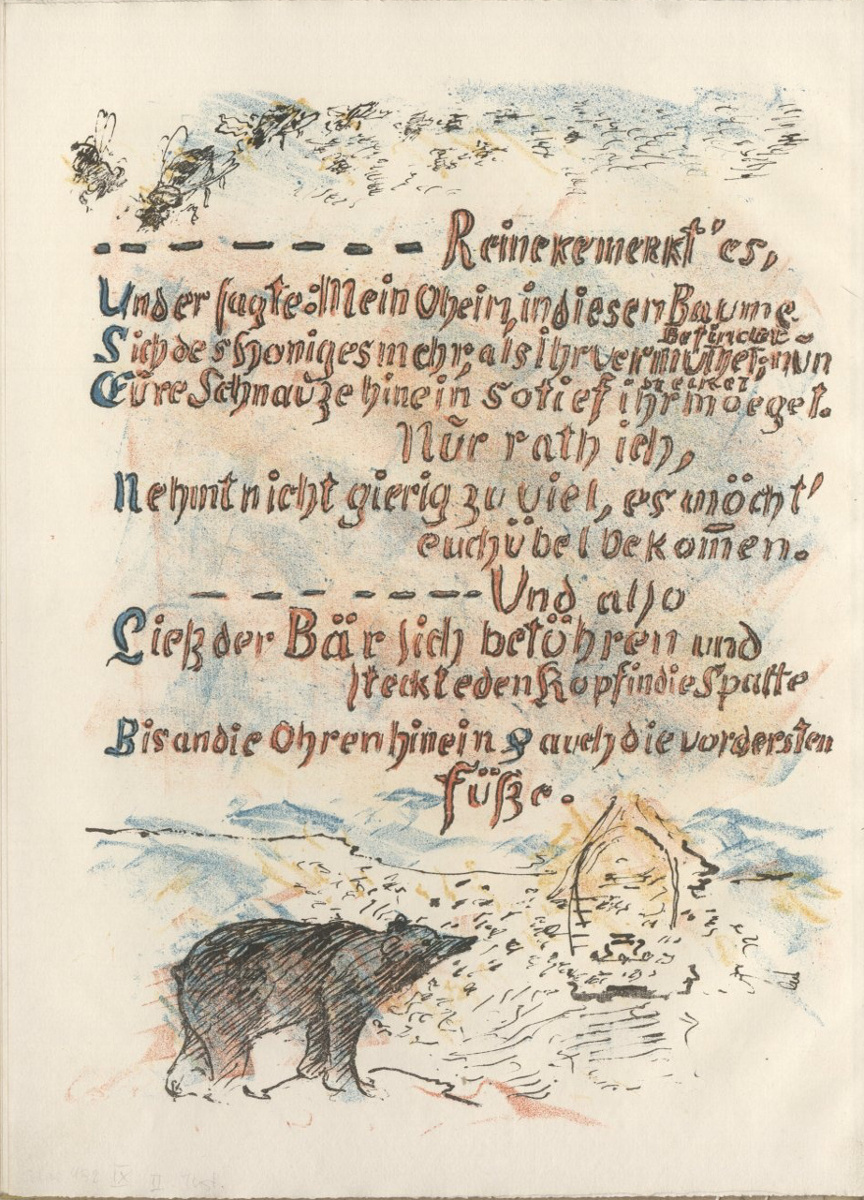 – – – – – – – – Reineke merkt' es,
Und er sagte: Mein Oheim, in diesem Baume
Befindet
Sich des Honiges mehr, als Ihr vermuthet; nun
stecket
Eure Schnauze hinein, so tief ihr moeget.
Nur rath ich,
Nehmt nicht gierig zu viel, es möcht'
euch übel bekom̅en.
– – – – – – – – Und also
Ließ der Bär sich betöhren und
steckte den Kopf in die Spalte
Bis an die Ohren hinein & auch die vordersten
Füße.